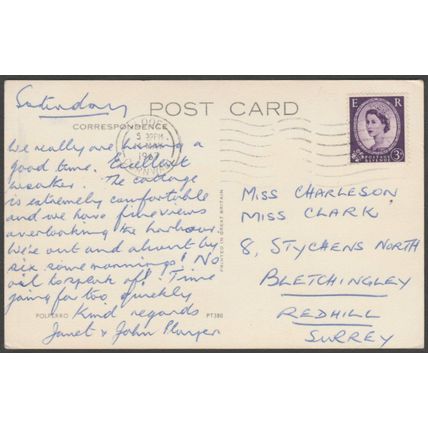 Saturday
POST CARD
CORRESPONDENCE
E R
POSTAGE REVENUE
3D
LOOE
5 30PM
1967
CORNWALL
We really are having a
good time. Excellent
weather. The cottage
is extremely comfortable
and we have fine views
overlooking the harbour
We're out and about by
six some mornings! No
oil to speak of! Time
going far too quickly
Kind regards
Janet & John
POLPERRO
PT380
PRINTED IN GREAT BRITAIN
MISS CHARLESON
MISS CLARK
8, STYCHENS NORTH
BLETCHINGLEY
REDHILL
SURREY